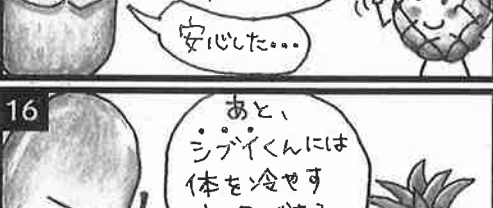 安心した…
16
あと、
シブイくんには
体を冷やす